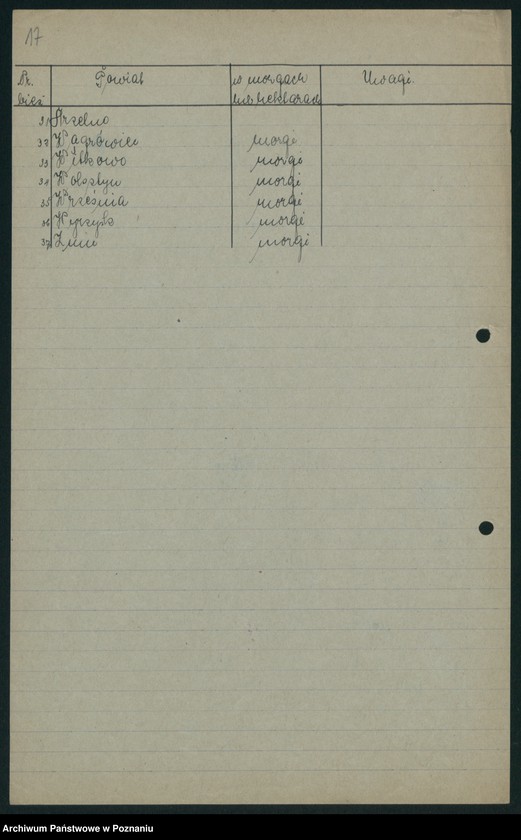 17
Nr. Powiat w morgach Uwagi.
bież. lub hektarach
31 Strzelno
32 Wągrówiec morgi
33 Witkowo morgi
34 Wolsztyn morgi
35 Września morgi
36 Wyrzysk morgi
37 Żnin morgi
Archiwum Państwowe w Poznaniu